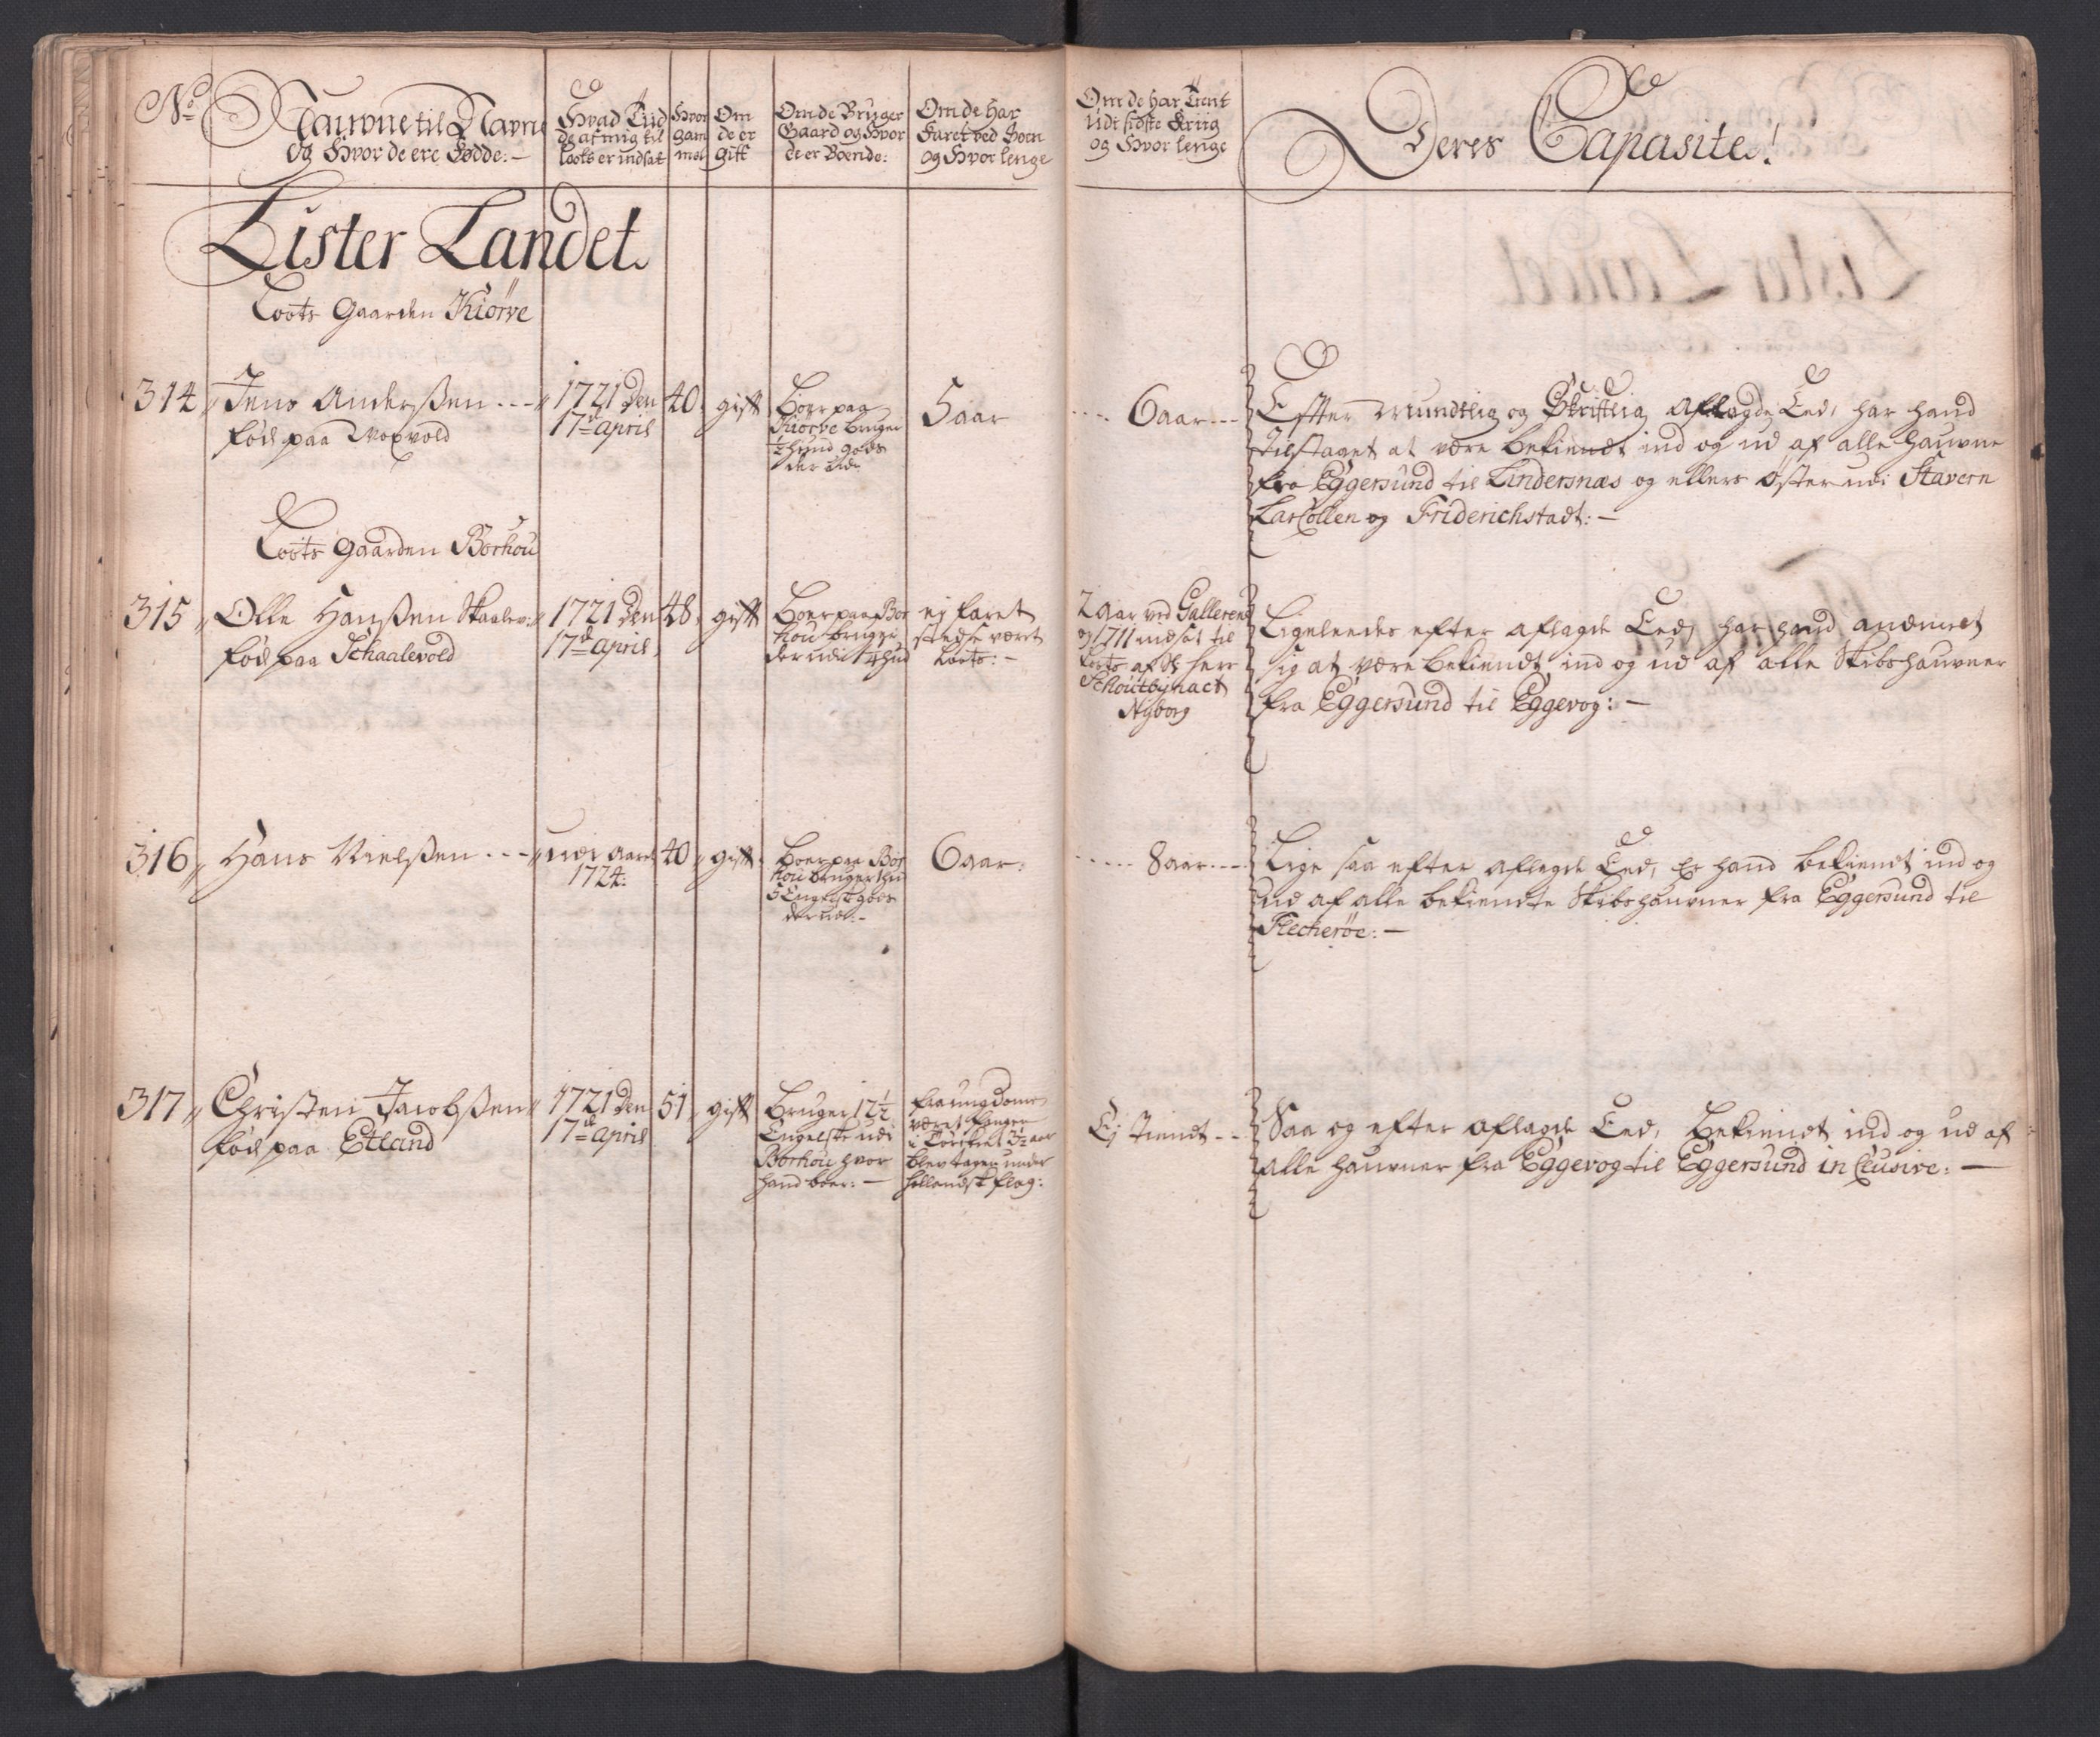 No
Naufvne til Nafvn
og Hvor de ere Fødde: -
Hvad Tiid
de af mig til
loots er indsat
Hvor
gam
mel
Om
de er
gift
Om de Bruger
Gaard og Hvor
de er Boende:
Om de har
Faret ved Søen
og Hvor lenge
Om de har Tient
Udi sidste Kriig
og Hvor lenge
Deres Capasite!
Lister Landet.
Loots Gaarden Kiørve
314 Jens Anderßen
fød paa
1721 Den
17de april
40
gift
Boer paa
Kiørve bruger
1/2 hund gods
der udi
5 aar
6 aar
Efter Mundtlig og Skriftlig aflagde Eed, har hand
tilstaaet at være bekiendt ind og ud af alle haufvne
fra Eggersund til Lindersnæs og ellers øster udi Stavern
Larkollen og Friderichstadt: -
Loots Gaarden Borhou
315 Olle Hanßen Skaalev:
fød paa Schaalevold
1721 Den
17de april
48
gift
Boer paa Bor
hou bruger
der udi 1/4 hud
ej faret
stedse været
Loots: -
2 aar ved Galleren
og 1711 indsat til
Loots af H: herr
Schoutbynact
Nyborg
Ligeleedes efter aflagde Eed, har hand andmeet
sig at være bekiendt ind og ud af alle Skibshaufner
fra Eggersund til Eggevog: -
316 Hans Nielßen
udi aaret
1724:
40
gift
Boer paa Bor
hou bruger 1 hu
5 Engelsk gods
der udi: -
6 aar:
8 aar
Lige saa efter aflagde Eed, Er hand bekiendt ind og
ud af alle bekiendte Skibshaufner fra Eggersund til
Flecherøe: -
317 Christen Jacobßen
fød paa Etland
1721 Den
17de april
51
gift
Bruger 12 1/2
Engelske udi
Borhou hvor
hand boer: -
fra ungdomen
været fanger
i 3 1/2 aar
blev tagen under
hollandsk flag:
Ej tiendt
Saa og efter aflagde Eed, Bekiendt ind og ud af
alle haufner fra Eggevog til Eggersund inclusive: -